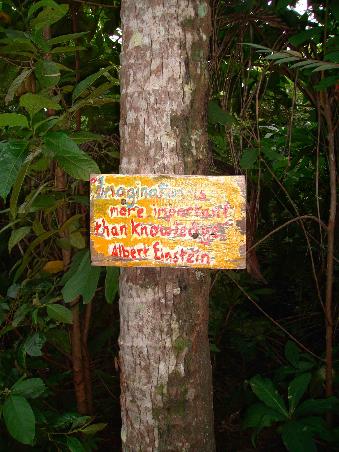 Imagination is
more important
than knowledge
Albert Einstein